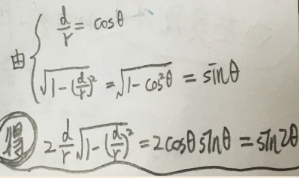 由 { d/r = cosθ
√(1-(d/r)²) = √(1-cos²θ) = sinθ
得 2 d/r √(1-(d/r)²) = 2cosθ sinθ = sin2θ